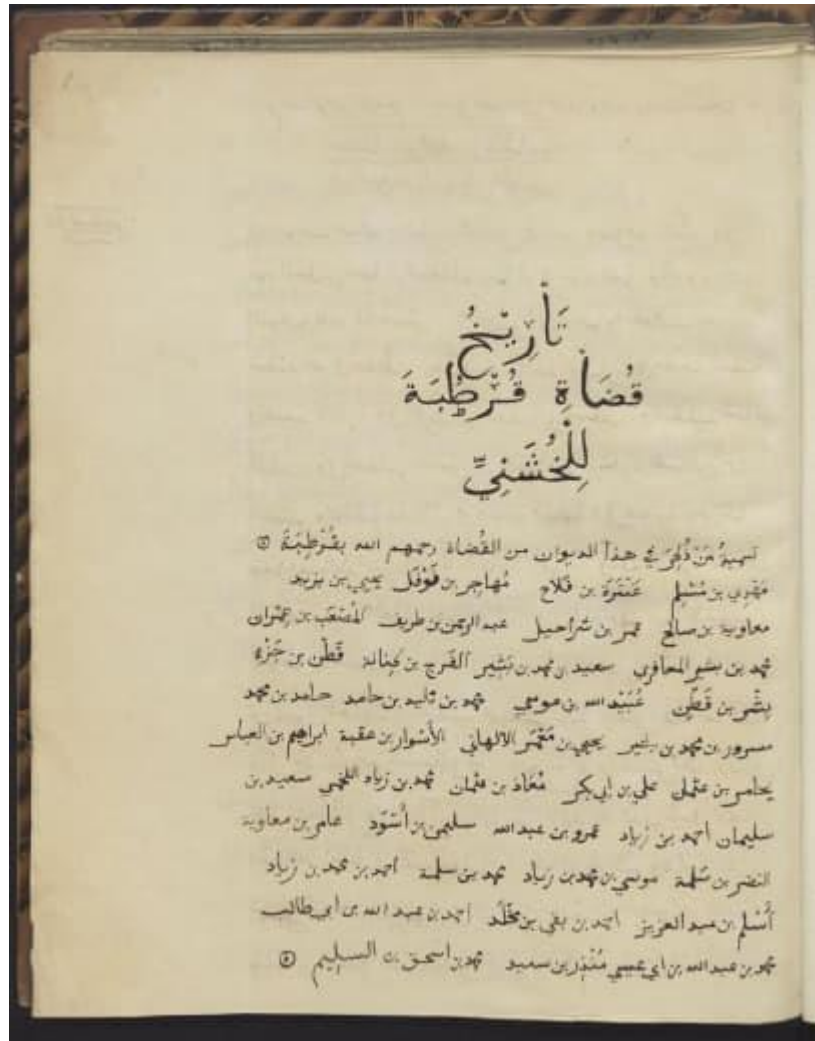 تَأرِيْخُ
قُضَاةِ قُرْطُبَةَ
لِلْخُشَنِيِّ
تسمية مَنْ ذُكِرَ في هذا الديوان من القُضاة رحمهم الله بقُرْطُبَةَ
مَهْدِي بن مُسْلِم عَنْتَرَة بن فلاح مُهاجر بن نَوْفَل يحيي بن يزيد
معاوية بن صالح عمر بن شراحيل عبد الرحمن بن طريف المُصْعَب بن عِمْران
محمد بن بشير المعافري سعيد بن محمد بن بَشِير الفَرَج بن كِنانة قَطَن بن جَزْء
بِشْر بن قَطَن عُبَيْد الله بن موسي محمد بن تليد بن حامد حامد بن محمد
مسرور بن محمد بن بشير يحيي بن مَعْمَر الالهاني الأسْوار بن عقبة ابراهيم بن العباس
يخامر بن عثمان علي بن ابي بكر مُعاذ بن عثمان محمد بن زياد اللخمي سعيد بن
سليمان احمد بن زياد عمرو بن عبد الله سليمن بن أَسْوَد عامر بن معاوية
النضر بن سَلَمة موسي بن محمد بن زياد محمد بن سلمة احمد بن محمد بن زياد
أَسْلم بن عبد العزيز احمد بن بقي بن مَخْلَد احمد بن عبد الله بن أبي طالب
محمد بن عبد الله بن ابي عيسي مُنْذِر بن سعيد محمد بن اسحق بن السليم